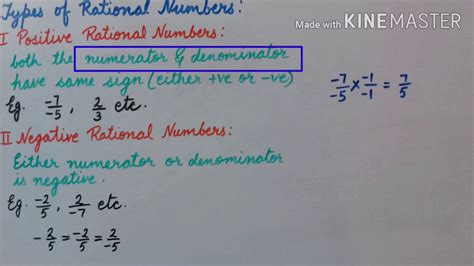 Types of Rational Numbers:
Made with KINEMASTER
I Positive Rational Numbers:
both the numerator & denominator
have same sign (either +ve or -ve)
Eg. -7/-5, 2/3 etc.
-7/-5 × -1/-1 = 7/5
II Negative Rational Numbers:
Either numerator or denominator
is negative.
Eg. -2/5, 2/-7 etc.
-2/5 = -2/5 = 2/-5